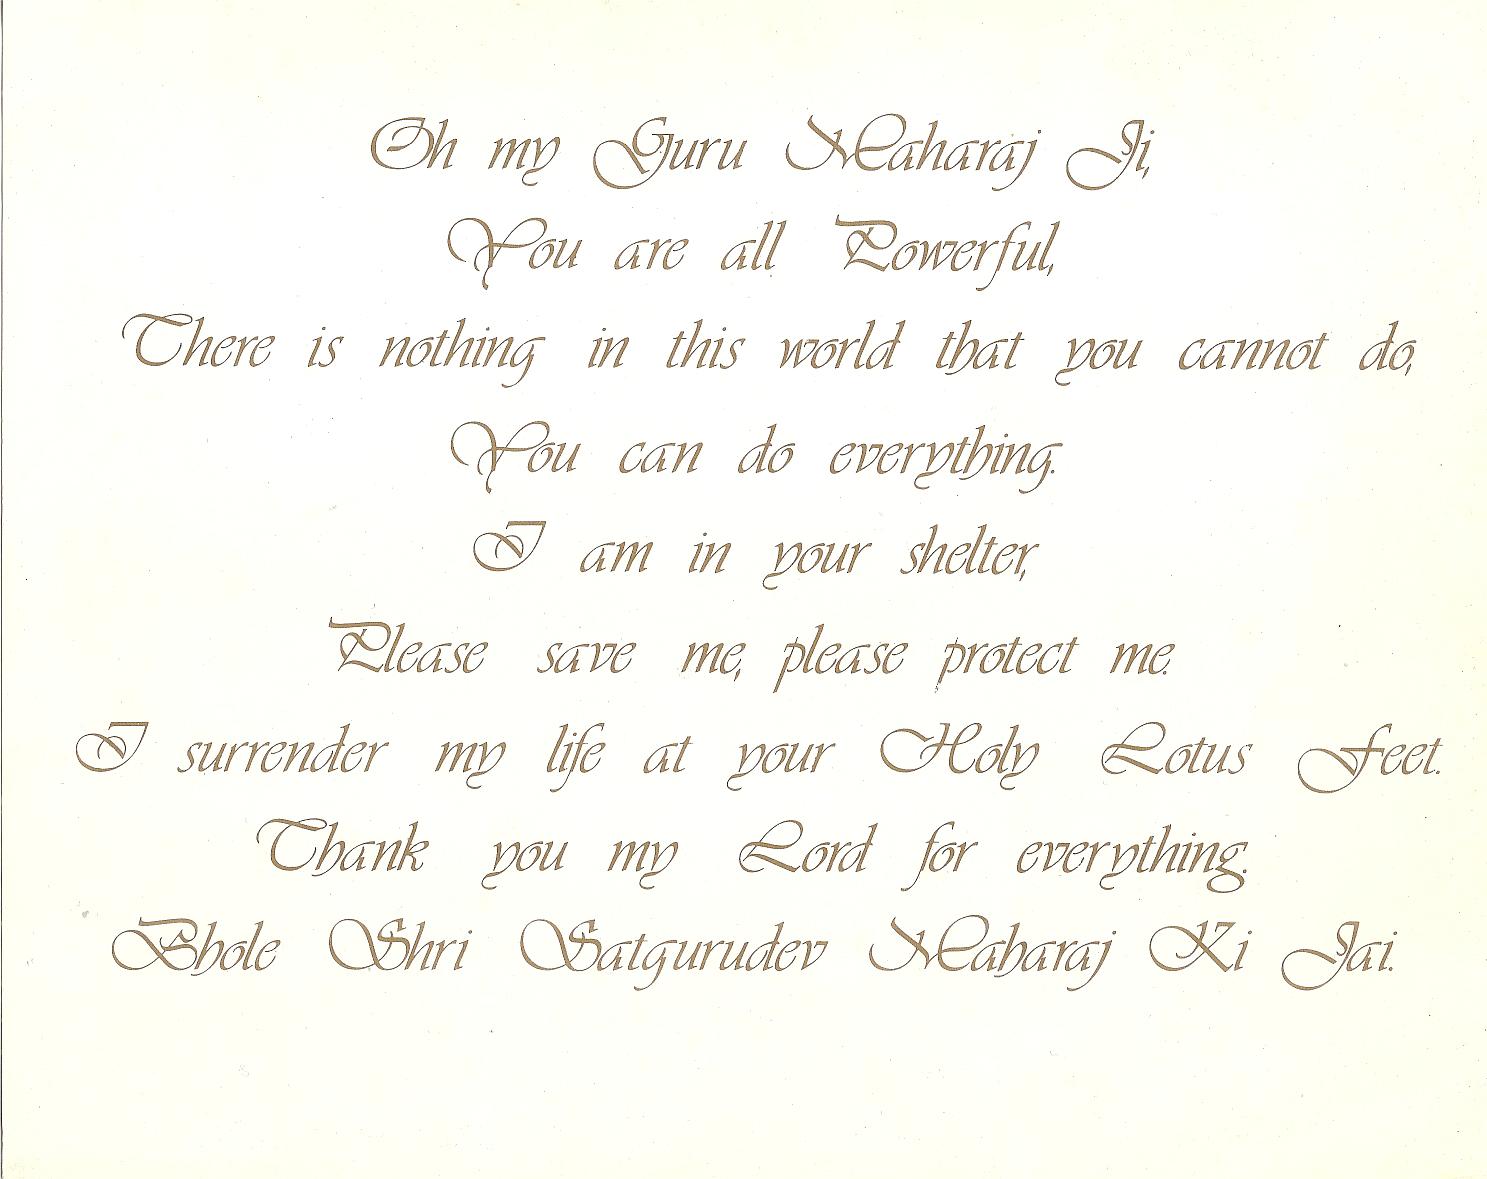 Oh my Guru Maharaj Ji,
You are all Powerful,
There is nothing in this world that you cannot do,
You can do everything.
I am in your shelter,
Please save me, please protect me.
I surrender my life at your Holy Lotus Feet.
Thank you my Lord for everything.
Bhole Shri Satgurudev Maharaj Ki Jai.